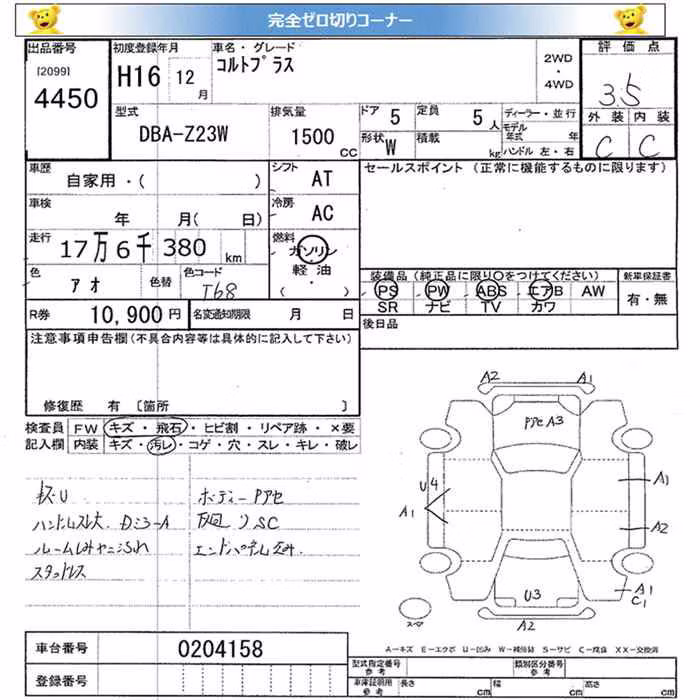 完全ゼロ切りコーナー
出品番号 初度登録年月 車名・グレード 評価点
[2099] 4450 H16 12月 コルトプラス 2WD・4WD 3.5
型式 排気量 ドア 5 定員 5人 ディーラー・並行 外装 内装
DBA-Z23W 1500 CC 形状 W 積載 kg モデル年式 年 ハンドル 左・右 C C
車歴 シフト セールスポイント (正常に機能するものに限ります)
自家用・( ) AT
車検 冷房
年 月( 日) AC
走行 燃料
17万6千380km ガソリン・軽油・( )
色 色替 色コード 装備品(純正品に限り○をつけてください) 新車保証書
アオ T68 PS PW ABS エアB AW 有・無
SR ナビ TV カワ
R券 10,900円 名変通知期限 月 日 後日品
注意事項申告欄(不具合内容等は具体的に記入して下さい)
修復歴 有 〔箇所 〕
検査員 FW キズ・飛石・ヒビ割・リペア跡・×要
記入欄 内装 キズ・汚レ・コゲ・穴・スレ・キレ・破レ
A2 A1
PアセA3
U4
A1
A1
A2
A1
C1
U3
A2
キズU ボディーPアセ
ハンドルスレ大 Dミラ-A
スタッドレス
A-キズ E-エクボ U-凹み W-補修跡 S-サビ C-腐食 XX-交換済
車台番号 0204158
登録番号
型式指定番号 参考 類別区分番号 参考
車庫証明用 参考 長さ cm 幅 cm 高さ cm